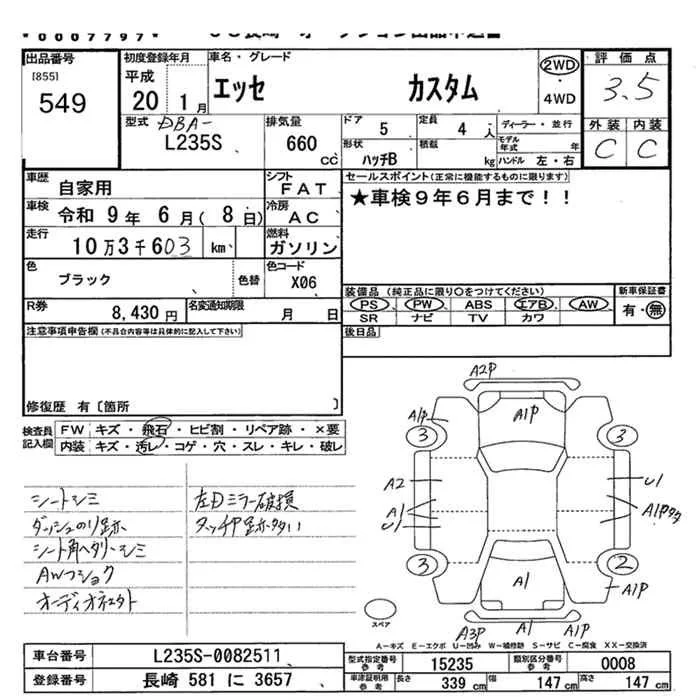 出品番号
[855]
549
初度登録年月
平成
20 1月
車名・グレード
エッセ カスタム
2WD
・
4WD
評価点
3.5
外装 内装
C C
型式 DBA-
L235S
排気量
660 cc
ドア 5
定員 4 人
形状 ハッチB
積載 kg
ディーラー・並行
モデル年式 年
ハンドル 左・右
車歴 自家用
シフト FAT
車検 令和 9年 6月( 8日)
冷房 AC
走行 10万3千603 km
燃料 ガソリン
色 ブラック 色替
色コード X06
R券 8,430円
名変通知期限 月 日
セールスポイント(正常に機能するものに限ります)
★車検9年6月まで!!
装備品 (純正品に限り○をつけてください)
PS PW ABS エアB AW
SR ナビ TV カワ
新車保証書
有・無
後日品
注意事項申告欄(不具合内容等は具体的に記入して下さい)
修復歴 有〔箇所 〕
検査員記入欄
FW キズ・飛石・ヒビ割・リペア跡・×要
内装 キズ・汚レ・コゲ・穴・スレ・キレ・破レ
シートシミ
ダッシュのり跡
シート角ヘタリーシミ
AWフショク
オーディオネエタト
左Dミラー破損
タッチP跡多い
A2P
A1P
A1P
3
3
A2
U1
A1
U1
A1Pタタ
3
2
A1
A1P
A3P
A1
A1P
スペア
A-キズ E-エクボ U-凹み W-補修跡 S-サビ C-腐食 XX-交換済
車台番号 L235S-0082511
登録番号 長崎 581 に 3657
型式指定番号 参考 15235
類別区分番号 参考 0008
車体証明用 参考 長さ 339 cm 幅 147 cm 高さ 147 cm